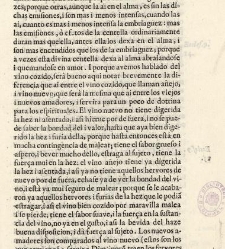 zes; porque otras, aunque la ai en el alma, es sin las di-
chas emisiones, i son mas i menos intensas, cuando las
ai, cuanto es mas i menos intensa la embriaguez; porque
las emisiones, ò efetos de la centella ordinariamente
duran mas que ella, antes ella los dexa en el alma; i
son mas encendidos que los de la embriaguez, porque
a vezes esta divina centella dexa al alma abrasandose
i quemandose en amor. I porque avemos hablado del
vino cozido, serà bueno aqui notar brevemente la di-
ferencia que ai entre el vino cozido, que llaman añejo,
i vino nuevo, que serà la mesma que ai entre los viejos
i nuevos amadores, i servirà un poco de dotrina
para los espirituales. El vino nuevo no tiene digerida
la hez ni asentada; i asi hierve por de fuera, i no se pue-
de saber la bondad i valor del, hasta que aya bien dige-
rido la hez i furia della, porque hasta entonces està en
mucha contingencia de malear; tiene el sabor grueso i
aspero, i bever mucho dello, estraga al sujeto; tiene la
fuerça mui en la hez. el vino añejo tiene ya digerida
la hez i asentada, i asi ya no tiene aquellos hervores de
nuevo por de fuera, echase ya de ver la bondad del vi-
no, i està ya mui seguro de malear; porque se le acaba-
ron ya aquellos hervores i furias de la hez que le podiã
estragar; i asi el vino bien cozido por maravilla malea
i se pierde; tiene el sabor suave, i la fuerça en la sustan-
cia del vino, no ya en el gusto; i asi la bevida del haze
buena disposicion, i dà fuerça al sujeto. Los nuevos a-
madores son comparados al vino nuevo (estos son los